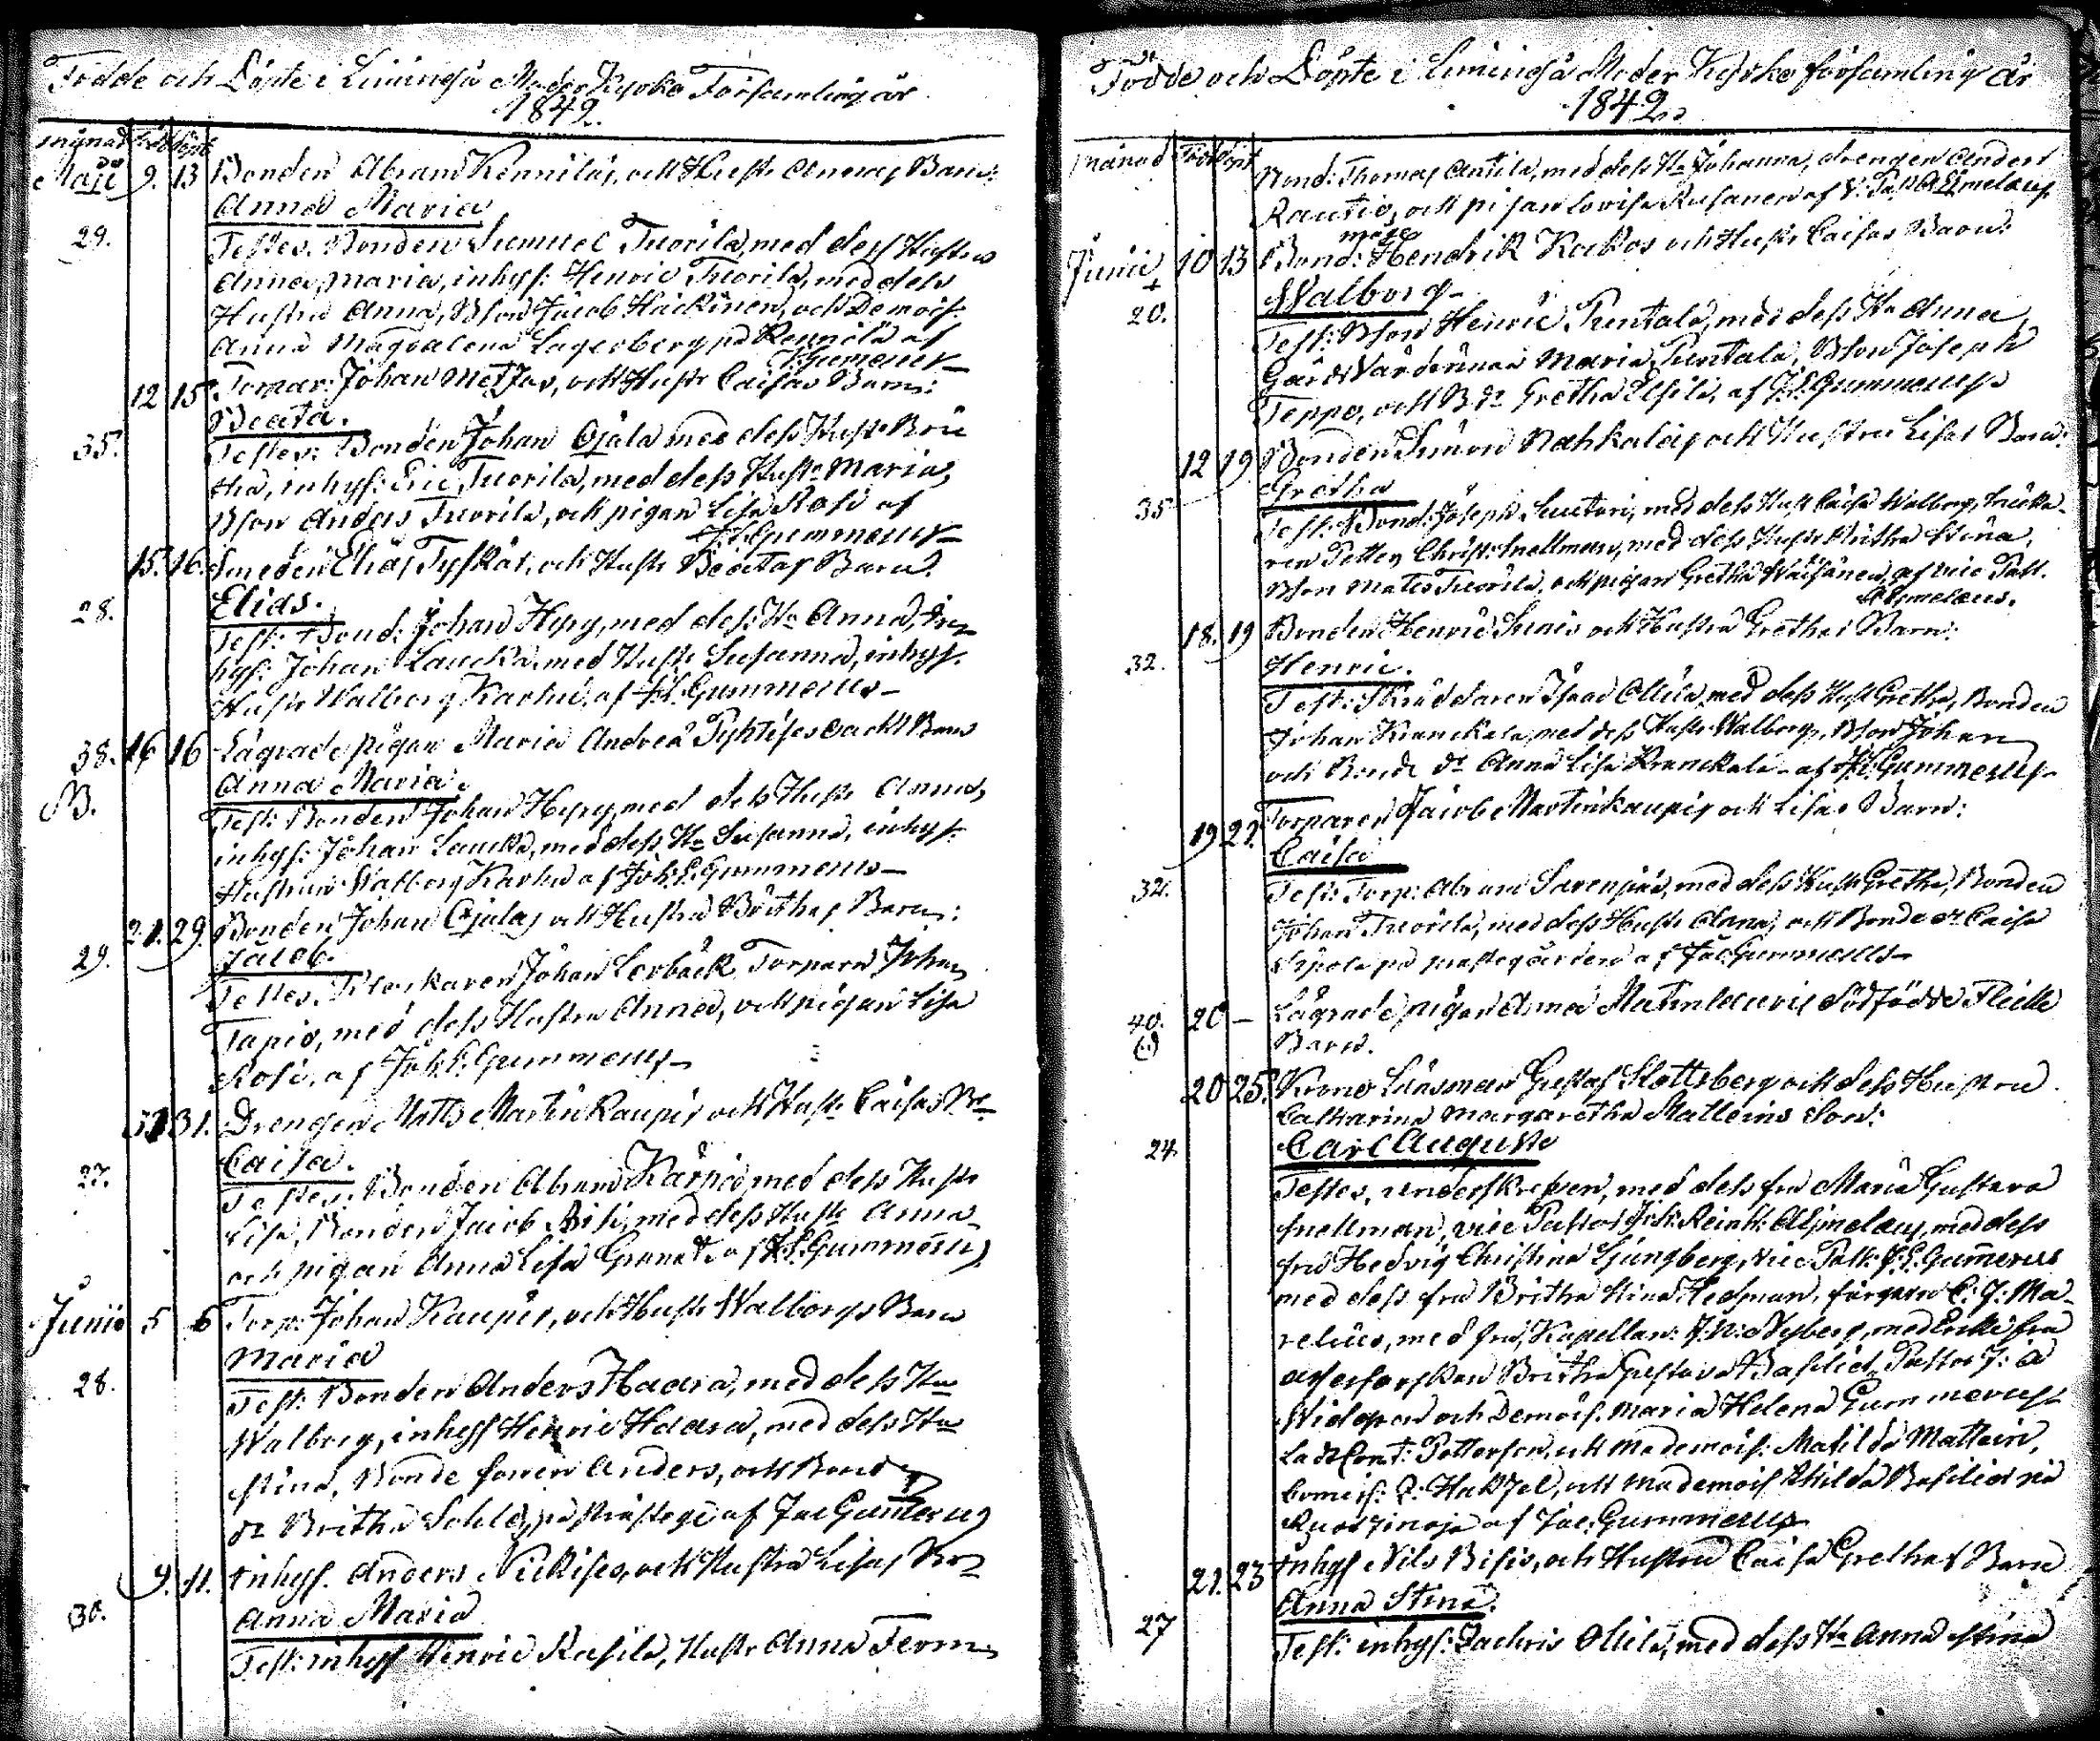 Födde och Döpte i Limingså Moder Kyrko Församling år
1842.
månad Född Döpt
Maji 9. 13 Bonden Abram Renniläs, och Hustr Annas Barn:
Anna Maria
29. Testes. Bonden Samuel Tuorila, med dess Hustru
Anna Maria, inhys: Henric Tuorila, med dess
Hustru Anna, Bson Jacob Häikinen, och Demois:
Anna Magdalena Lagerberg på Rennilä af
Gummerus
12 15 Torpar: Johan Metsos, och Hustr Caisas Barn:
Beata.
35. Testes: Bonden Johan Ojala med dess Hustr Bri
tha, inhys: Eric Tuorila, med dess Hustr Maria,
Bson Anders Tuorila, och pigan Lisa Rosi af
J. L. Gummerus
15. 16. Smeden Elias Tyskäs, och Hustr Beatas Barn.
Elias.
28. Test: Bond: Johan Hyry, med dess Ha Anna, in
hys: Johan Laucka, med Hustr Susanna, inhys.
Hustr Walborg Karhu, af J. L. Gummerus
38. 14 16 Lägrade pigan Maria Andrea Pyhtises oäckt Barn
B. Anna Maria.
Test: Bonden Johan Hyry, med dess Hustr Anna,
inhys: Johan Laucka, med dess Ha Susanna, inhys:
Hustrun Walborg Karhu af Joh. L. Gummerus
21. 29. Bonden Johan Ojalas och Hustru Brithas Barn:
29. Jacob.
Testes. Klockaren Johan Lerbäck, Torparn Johan
Tapio, med dess Hustru Anna, och pigan Lisa
Rosi, af Joh. L. Gummerus
31. Drengen Matts Martinkaupis och Hustr Caisas Br
Caisa.
27. Testes: Bonden Abram Karpio, med dess Hustr
Lisa, Bonden Jacob Bisi, med dess Hustr Anna
och pigan Anna Lisa Granat af J. L. Gummerus
Junii 5 6 Torp: Johan Kaupis, och Hustr Walborgs Barn
Maria
28. Test: Bonden Anders Haara, med dess Ha
Walborg, inhys Henric Haara, med dess Ha
Stina, Bonde sonen Anders, och Bond
dr Britha Sohlo, på Prästegd af Jac Gummerus
9. 11. inhys. Anders Nickises, och Hustru Lisas Br
30. Anna Maria
Test: inhys Henric Rusila, Hustr Anna Ferm
Födde och Döpte i Limingså Moder Kyrko församling år
1842.
månad Född Döpt
Bond: Thomas Antila, med dess Ha Johanna, drengen Anders
Rautio, och pigan Lovisa Rusanen af V. Past Alhmelaus
Junii 10 13 Bond: Hendrik Kackos och Hustr Caisas Barn:
20. Walborg
Test: Bson Henric Puntala, med dess Ha Anna,
Gårds Värdinnan Maria Puntala, Bson Joseph
Teppo, och B. dr Gretha Elsila, af J. L. Gummerus
12 19 Bonden Simon Nahkalas och Hustru Lisas Barn:
Gretha
35 Test: Bond: Joseph Suutari, med dess Hust Caisa Walborg,
ren Petter Christ: Snellman, med dess Hustr Britha Stina,
Bson Mats Tuorila, och pigan Gretha Wäisänen, af vice Past.
Alhmelaus.
18. 19 Bonden Henric Sunis och Hustru Grethas Barn:
32. Henric.
Test: Skräddaren Isaac Ollila, med dess Hust Gretha, Bonden
Johan Kranckala, med dess Hustr Walborg, Bson Johan
och Bonde dr Anna Lisa Kranckala. af J. L. Gummerus
19 22. Torparen Jacob Martinkaupis och Lisas Barn:
Caisa
32. Test: Torp: Abram Sarenpää, med dess Hust Gretha, Bonden
Johan Tuorila, med dess Hustr Anna, och Bonde dr Caisa
Sipola på prästegården af Jac Gummerus
40. 20 — Lägrade pigan Anna Matinlauris dödfödde Flicke
Barn.
20 25. Krono Länsman Gustaf Slottsberg och dess Hustru
Catharina Margaretha Matleins Son:
24. Carl August
Testes, underskrefven, med dess fru Maria Gustava
Snellman, vice Pastor Joh: Reinh: Alhmelaus, med dess
fru Hedvig Christina Ljungberg, vice Past: J. L. Gummerus
med dess fru Britha Stina Hedman, färgaren C: J: Ma-
relius, med fru, Kapellan: J. N: Nyberg, med Enkefru
Britha Gustava Basilier, Pastor J: A
och Demois. Maria Helena Gummerus
Petterson, och Mademois: Matilda Mattein,
och Mademois Basilier på
af Jac: Gummerus
21. 23 inhys Nils Bisis, och Hustru Caisa Grethas Barn
Anna Stina.
27 Test: inhys: Zachris Ollila, med dess Ha Anna Stina